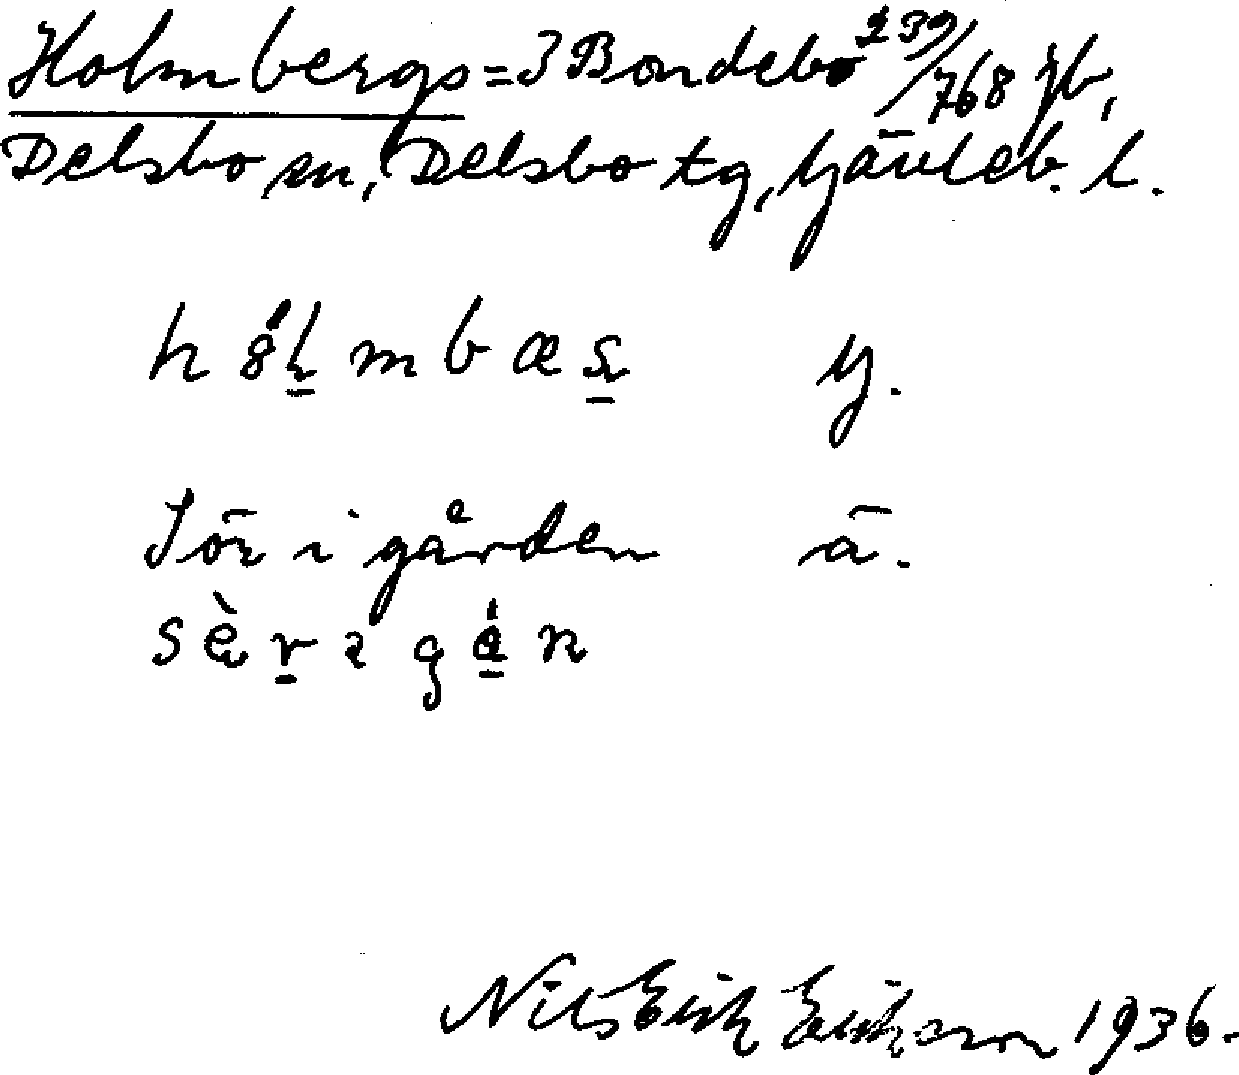 Holmbergs = 3 Bondebo 239/768 jb,
Delsbo sn, Delsbo tg, Gävleb. l.
y.
Sör i gården ä.
Nils Erik Erikson 1936.